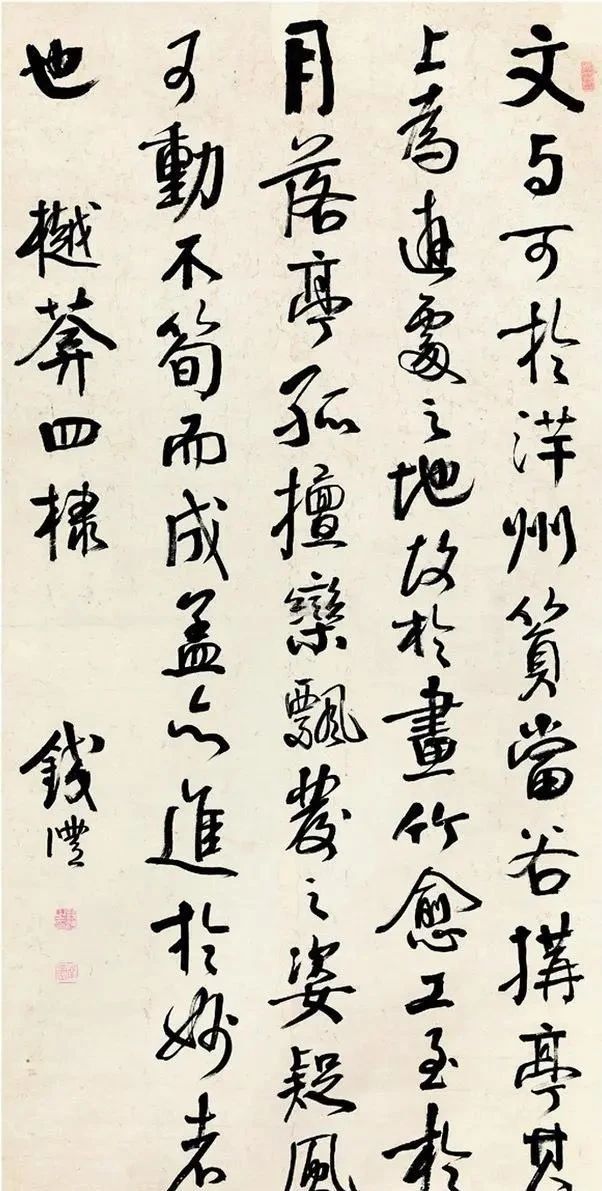 文与可於洋州篔當谷搆亭其
上為遊處之地故於畫竹愈工至於
月落亭孤檀欒飄發之姿疑風
可動不筍而成盖亦進於妙者
也 樾葊四棣 錢灃